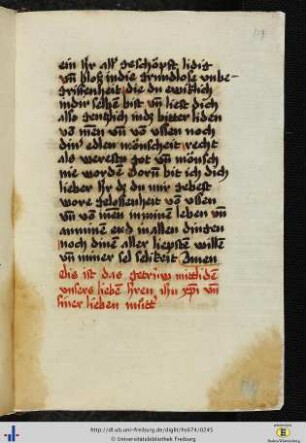 ein Ihr all geschöpft lidig
vn̄ bloß in die grundlose vnbe-
griffenheit die du ewiklich
in dir selben bist vn̄ liest dich
also gentzlich in dz bitter liden
vō jnnen vn̄ vō vssen noch
diner edlen mönscheit recht
als werestu got vn̄ mönsch
nie worden Dorum bit ich dich
lieber Ihr dz du mir gebest
wore gelossenheit vō vssen
vn̄ vō jnnen in mime leben vn̄
an mime end in allen dingen
noch dinē aller liepsten willē
vn̄ miner sel selikeit Amen
Dis ist das getruw mittliden
vnsers lieben hren ihu xpi vn̄
siner lieben mutt
http://dl.ub.uni-freiburg.de/diglit/hs674/0245
© Universitätsbibliothek Freiburg